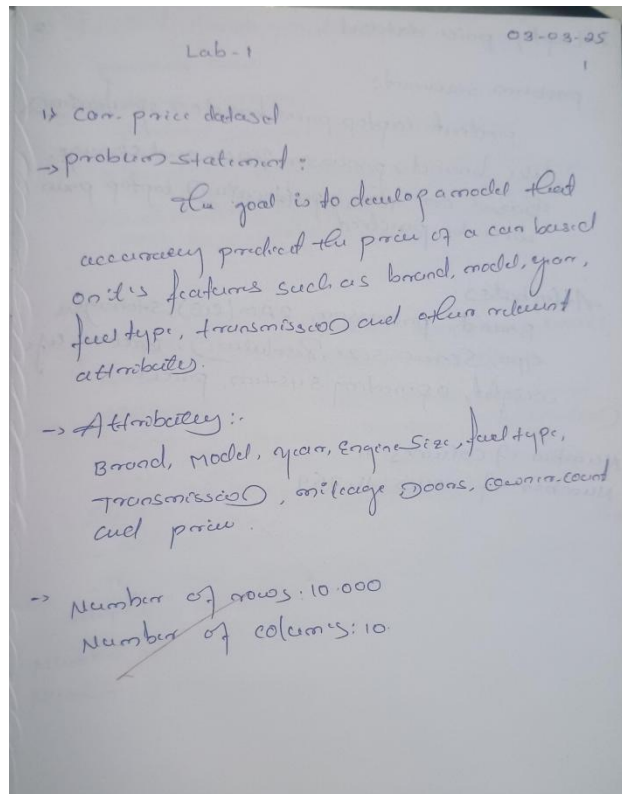 03-03-25
Lab-1
1
1) Car price dataset
→ problem statement:
The goal is to develop a model that
accuracey predict the price of a car based
on it's features such as brand, model, year,
fuel type, transmission and other relevant
attributes.
→ Attributes:
Brand, Model, year, Engine Size, fuel type,
Transmission, mileage Doors, owner-count
and price.
→ Number of rows: 10.000
Number of colum's: 10